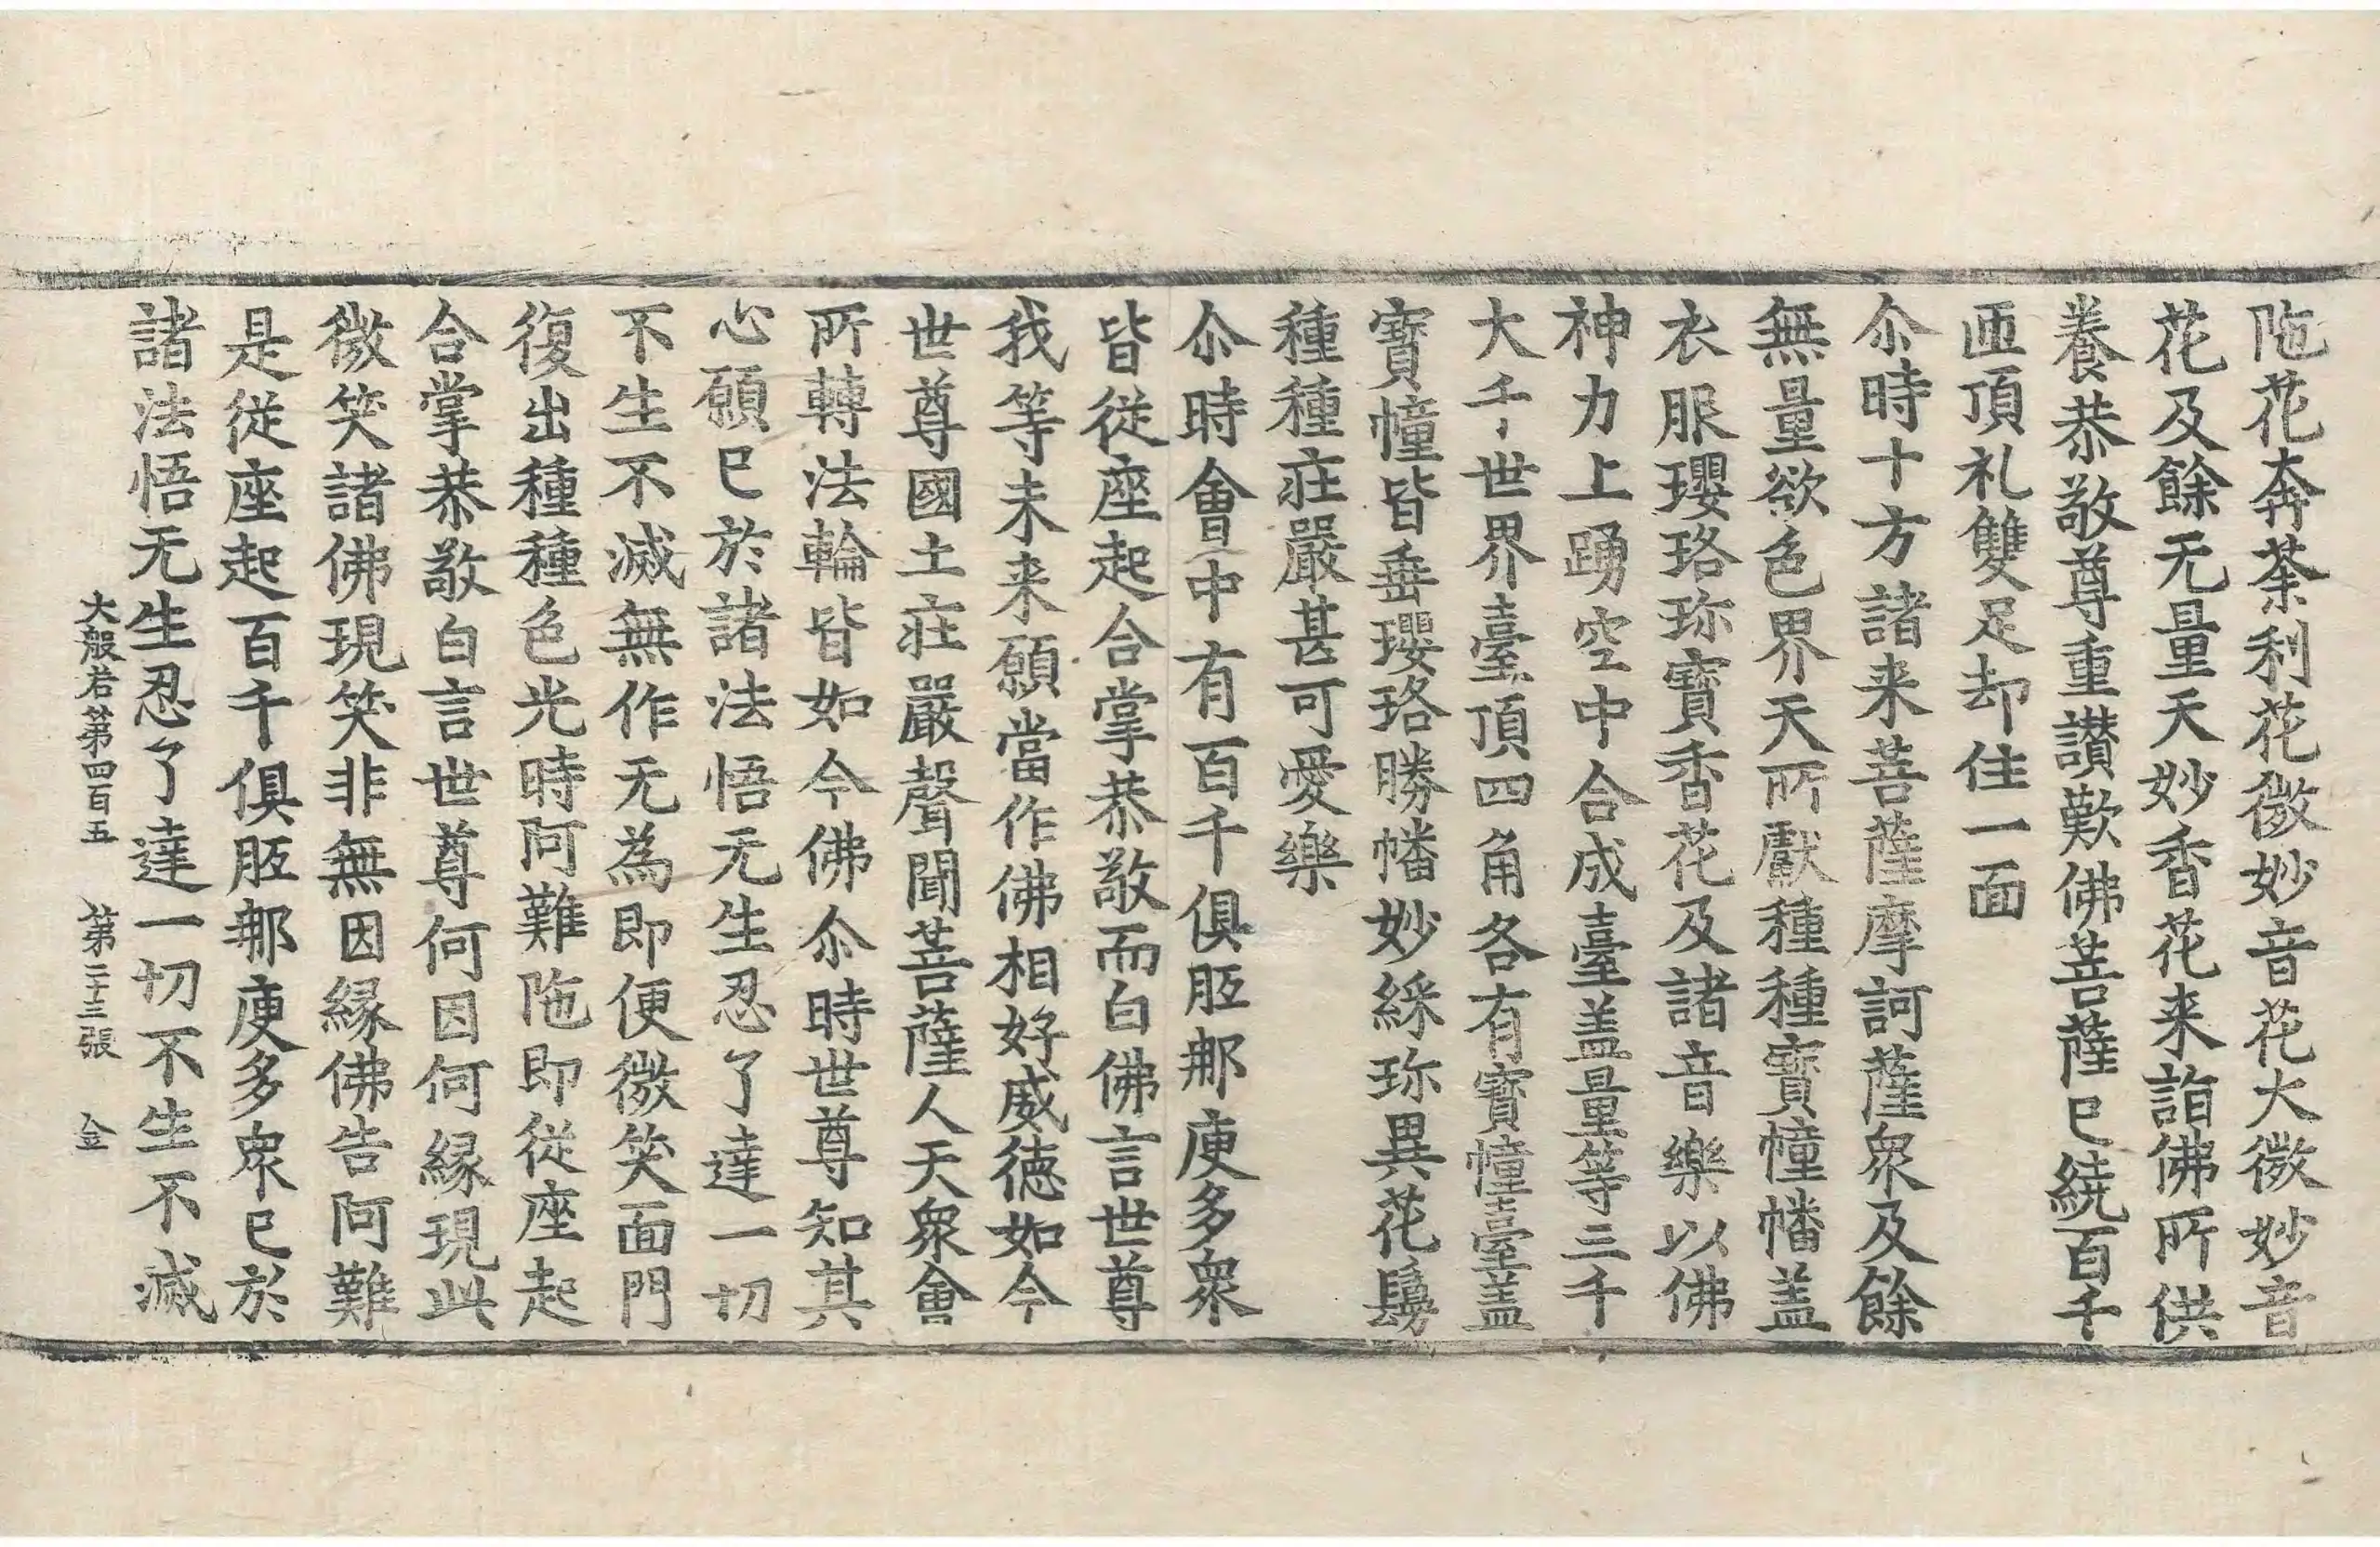 陁花奔荼利花微妙音花大微妙音
花及餘无量天妙香花来詣佛所供
養恭敬尊重讃歎佛菩薩已繞百千
匝頂礼雙足却住一面
尒時十方諸来菩薩摩訶薩衆及餘
無量欲色界天所獻種種寶幢幡盖
衣服瓔珞珎寶香花及諸音樂以佛
神力上踴空中合成臺盖量等三千
大千世界臺頂四角各有寶幢臺盖
寶幢皆垂瓔珞勝幡妙綵珎異花鬘
種種莊嚴甚可愛樂
尒時會中有百千俱胝那庾多衆
皆從座起合掌恭敬而白佛言世尊
我等未来願當作佛相好威德如今
世尊國土莊嚴聲聞菩薩人天衆會
所轉法輪皆如今佛尒時世尊知其
心願已於諸法悟无生忍了達一切
不生不滅無作无為即便微笑面門
復出種種色光時阿難陁即從座起
合掌恭敬白言世尊何因何緣現此
微笑諸佛現笑非無因緣佛告阿難
是從座起百千俱胝那庾多衆已於
諸法悟无生忍了達一切不生不滅
大般若第四百五 第二十三張 金